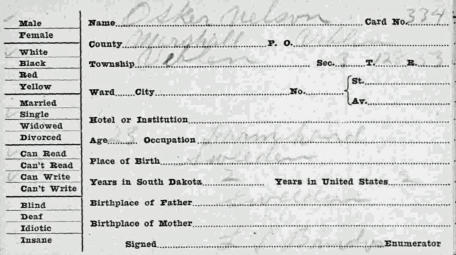 Male
Female
White
Black
Red
Yellow
Married
Single
Widowed
Divorced
Can Read
Can't Read
Can Write
Can't Write
Blind
Deaf
Idiotic
Insane
Name Osker Nelson Card No. 334
County Marshall P. O.
Township Sec. T. 128 R.
Ward City No. St.
Av.
Hotel or Institution
Age 23 Occupation Farm hand
Place of Birth Sweden
Years in South Dakota 2 Years in United States 2
Birthplace of Father Sweden
Birthplace of Mother
Signed Enumerator